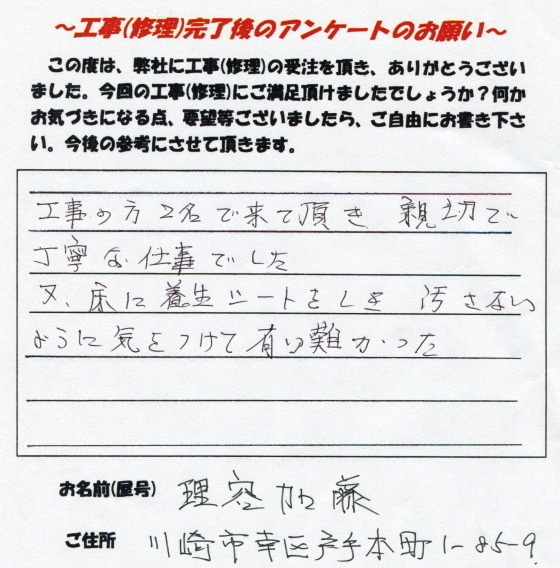 ～工事(修理)完了後のアンケートのお願い～
この度は、弊社に工事(修理)の受注を頂き、ありがとうござい
ました。今回の工事(修理)にご満足頂けましたでしょうか？何か
お気づきになる点、要望等ございましたら、ご自由にお書き下さ
い。今後の参考にさせて頂きます。
工事の方2名で来て頂き 親切で
丁寧な仕事でした
又、床に養生シートをしき 汚さない
ように気をつけて有り難かった
お名前(屋号) 理容加藤
ご住所 川崎市幸区戸手本町1-85-9